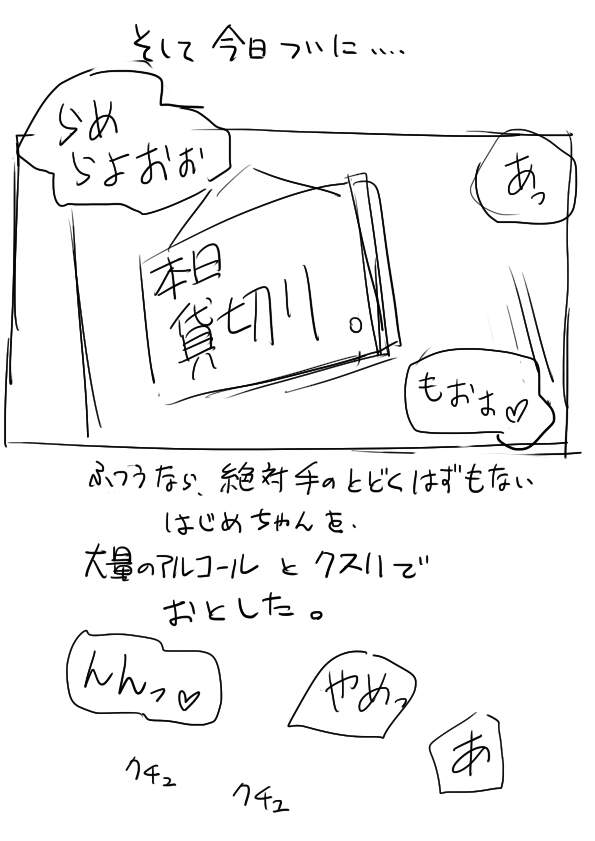 そして今日ついに‥‥
らめ
らよおぉ
あっ
本日
貸切り。
もおぉ♡
ふつうなら、絶対手のとどくはずもない
はじめちゃんを、
大量のアルコールとクスリで
おとした。
んんっ♡
やめっ
あ
クチュ
クチュ